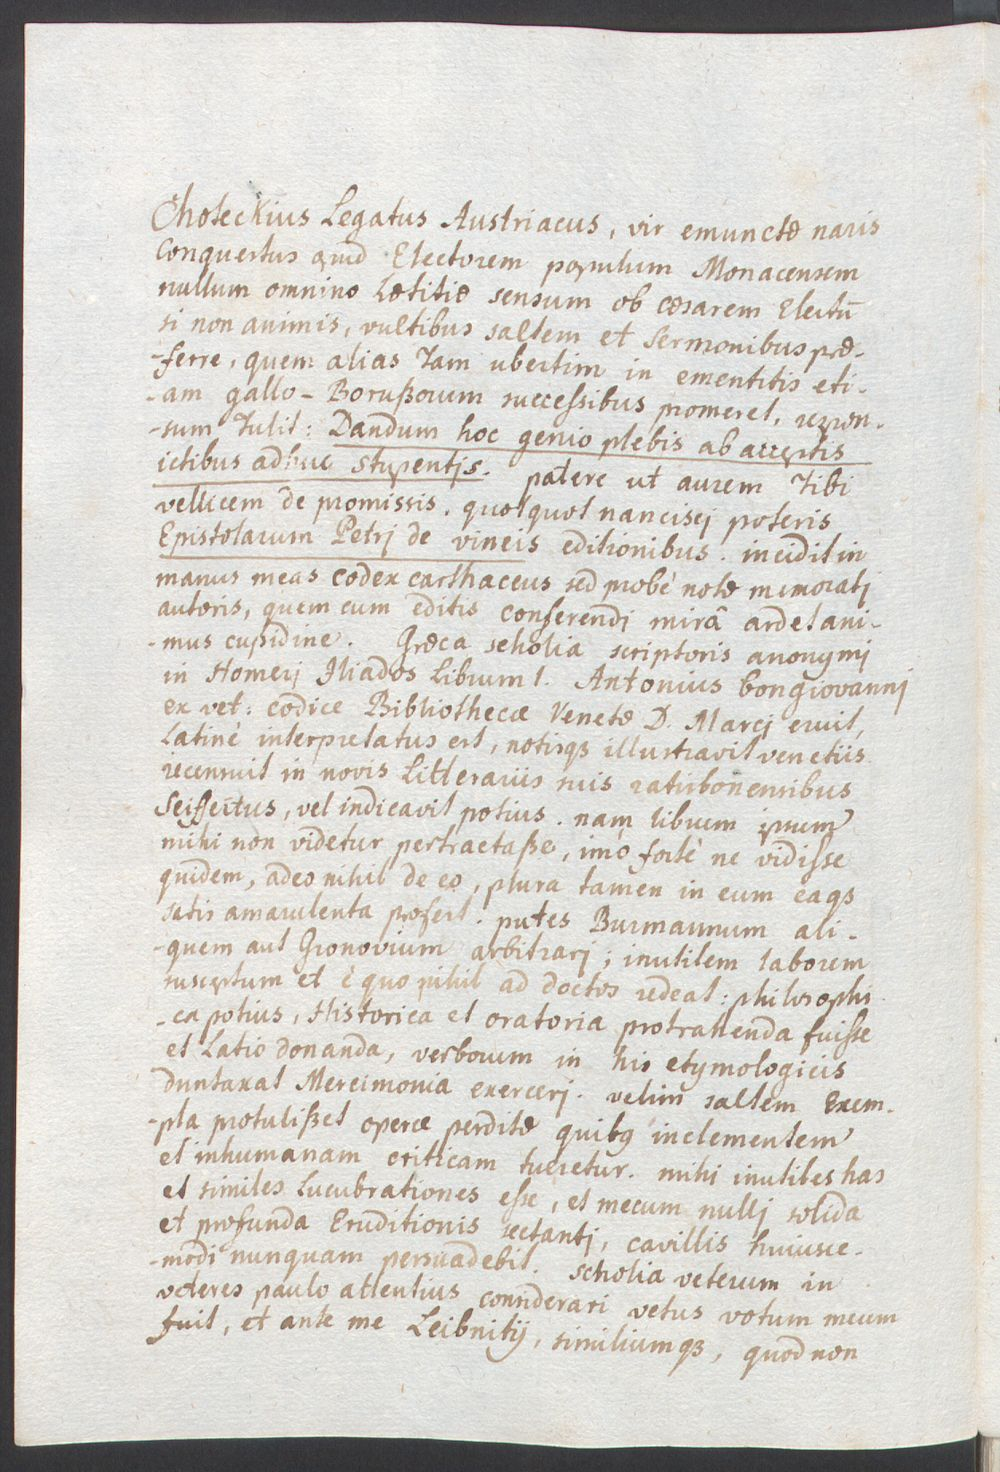 Choteckius Legatus Austriacus, vir emunctæ naris
Conquertus quid Electorem populum Monacensem
nullum omnino Lætitiæ sensum ob cæsarem Electū
si non animis, vultibus saltem et sermonibus præ-
-ferre, quem alias Tam ubertim in ementitis eti-
-am gallo-Borußorum successibus promeret, respon-
-sum Tulit: Dandum hoc genio plebis ab acceptis
ictibus adhuc stupentis. patere ut aurem Tibi
vellicem de promissis, quotquot nancisci poteris
Epistolarum Petrj de vineis editionibus. incidit in
manus meas codex carthaceus sed probè notæ memoratj
autoris, quem cum editis conferendi mirâ ardet ani-
-mus cupidine. Græca scholia scriptoris anonymj
in Homerj Iliados Librum 1. Antonius bongiovannj
ex vet: codice Bibliothecæ Venetæ D. Marcj eruit,
Latinè interpretatus est, notisqs illustravit venetiis.
recensuit in novis Litterariis suis ratisbonensibus
Seiffertus, vel indicavit potius. nam librum ipsum
mihi non videtur pertractaße, imò fortè ne vidisse
quidem, adeo nihil de eo, plura tamen in eum eaqs
satis amarulenta profert. putes Burmannum ali-
-quem aut Gronovium arbitrarj; inutilem laborem
susceptum et è quo nihil ad doctos redeat: philosophi-
-ca potius, Historica et oratoria protrahenda fuisse
et Latio donanda, verborum in his etymologicis
duntaxat Mercimonia exercerj. velim saltem Exem-
-pla protulißet operæ perditæ quibus inclementem
et inhumanam criticam tueretur. mihi inutiles has
et similes Lucubrationes esse, et mecum nullj solida
et profunda Eruditionis sectantj, cavillis huiusce-
-modi nunquam persuadebit. scholia veterum in
veteres paulo attentius considerari vetus votum mecum
fuit, et ante me Leibnitij, similiumqs, quod non